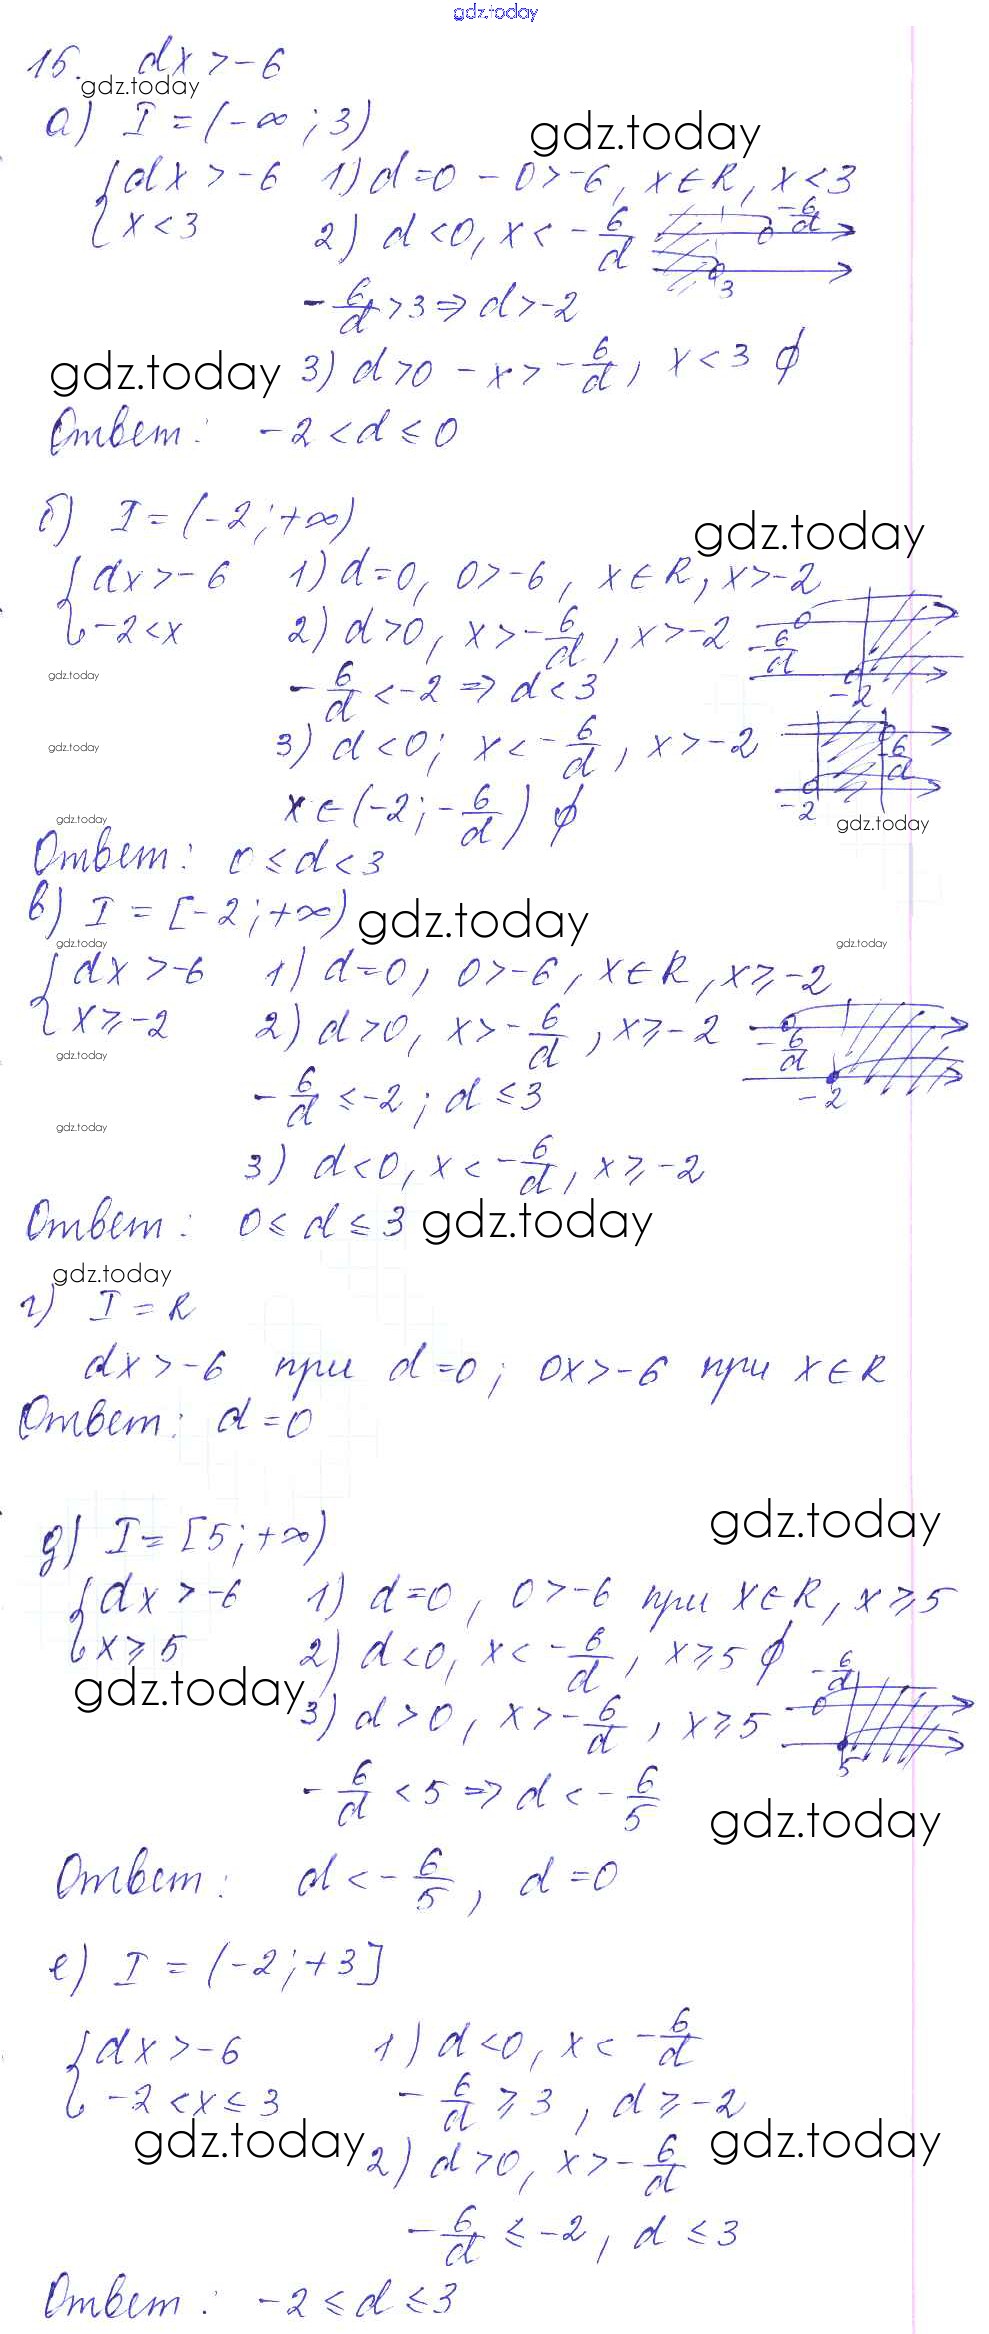 gdz.today
16. dx > -6
gdz.today
а) I = (-∞; 3)
gdz.today
{dx > -6 1) d=0 - 0>-6, x∈R, x<3
{x<3 2) d<0, x < -6/d
-6/d
3
-6/d > 3 ⇒ d>-2
gdz.today 3) d>0 - x > -6/d, x<3 ∅
Ответ: -2 < d ≤ 0
б) I = (-2; +∞)
gdz.today
{dx > -6 1) d=0, 0>-6, x∈R, x>-2
{-2<x 2) d>0, x > -6/d, x>-2
-6/d
-2
gdz.today -6/d < -2 ⇒ d<3
gdz.today 3) d<0; x < -6/d, x>-2
-6/d
-2
gdz.today x∈(-2; -6/d) ∅
gdz.today
Ответ: 0 ≤ d < 3
в) I = [-2; +∞) gdz.today
gdz.today gdz.today
{dx > -6 1) d=0, 0>-6, x∈R, x≥-2
{x≥-2 2) d>0, x > -6/d, x≥-2
-6/d
-2
gdz.today
-6/d ≤ -2; d ≤ 3
gdz.today
3) d<0, x < -6/d, x≥-2
Ответ: 0 ≤ d ≤ 3 gdz.today
gdz.today
г) I = R
dx > -6 при d=0; 0x>-6 при x∈R
Ответ: d=0
gdz.today
д) I = [5; +∞)
{dx > -6 1) d=0, 0>-6 при x∈R, x≥5
{x≥5 2) d<0, x < -6/d, x≥5 ∅
gdz.today 3) d>0, x > -6/d, x≥5
-6/d
5
-6/d < 5 ⇒ d < -6/5
gdz.today
Ответ: d < -6/5, d=0
е) I = (-2; +3]
{dx > -6 1) d<0, x < -6/d
{-2<x≤3 -6/d ≥ 3, d≥-2
gdz.today gdz.today
2) d>0, x > -6/d
-6/d ≤ -2, d ≤ 3
Ответ: -2 ≤ d ≤ 3